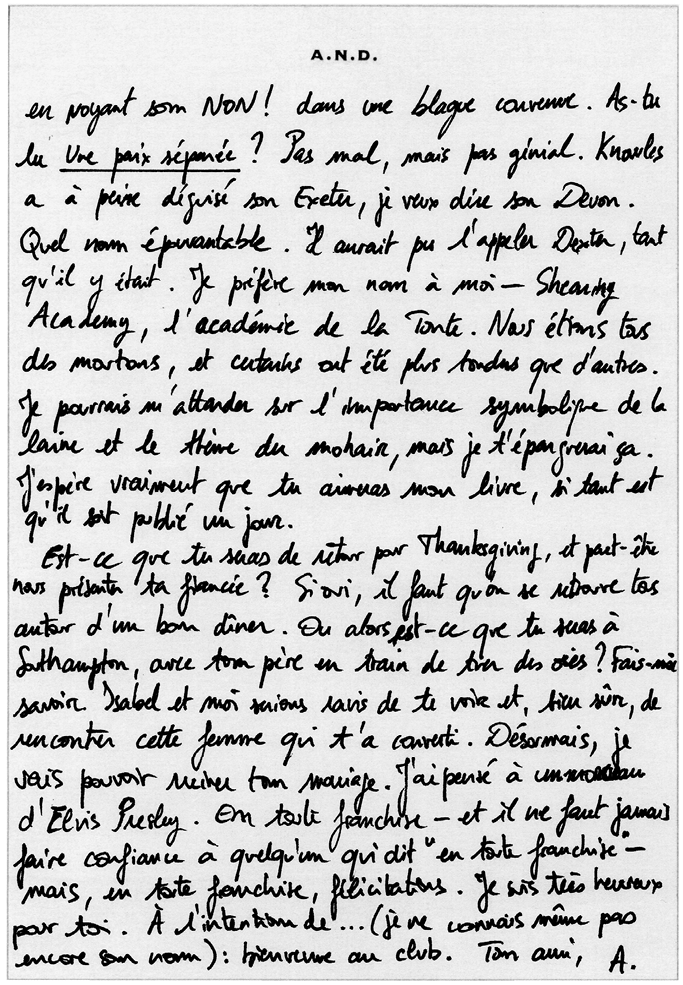 A.N.D.
en voyant som NON ! dans une blague convenue. As-tu
lu Une paix séparée ? Pas mal, mais pas génial. Knowles
a à peine déguisé son Exeter, je veux dire son Devon.
Quel nom épouvantable. Il aurait pu l'appeler Dexter, tant
qu'il y était. Je préfère mon nom à moi — Shearing
Academy, l'académie de la Tonte. Nous étions tous
des moutons, et certains ont été plus tondus que d'autres.
Je pourrais m'attarder sur l'importance symbolique de la
laine et le thème du mohair, mais je t'épargnerai ça.
J'espère vraiment que tu aimeras mon livre, si tant est
qu'il soit publié un jour.
Est-ce que tu seras de retour pour Thanksgiving, et peut-être
nous présenter ta fiancée ? Si oui, il faut qu'on se retrouve tous
autour d'un bon dîner. Ou alors, est-ce que tu seras à
Southampton, avec ton père en train de tirer des oies ? Fais-moi
savoir. Isabel et moi serions ravis de te voir et, bien sûr, de
rencontrer cette femme qui t'a converti. Désormais, je
vais pouvoir ruiner ton mariage. J'ai pensé à un morceau
d'Elvis Presley. En toute franchise — et il ne faut jamais
faire confiance à quelqu'un qui dit "en toute franchise" —
mais, en toute franchise, félicitations. Je suis très heureux
pour toi. À l'intention de ... (je ne connais même pas
encore son nom) : bienvenue au club. Ton ami, A.